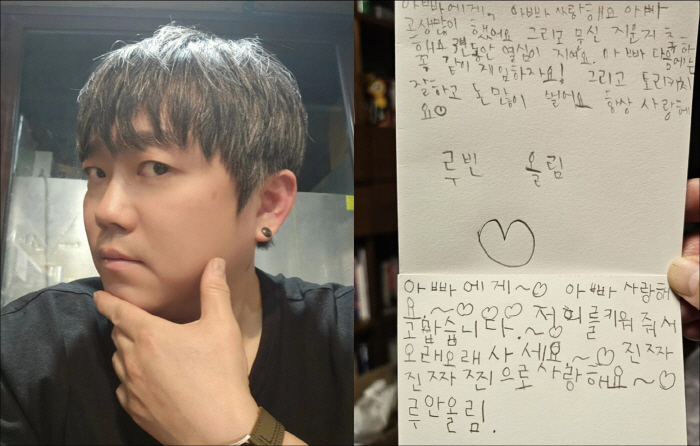 아빠에게, 아빠 사랑해요 아빠
고생많이 했어요 그리고 무신 지르지 축
해요 동안 열심이 지어요. 아빠 다음에는
꼭 같이 게임하자요! 그리고 토리키치
잘하고 돈 많이 벌어요 항상 사랑해
요
루빈 올림
아빠에게~♡ 아빠 사랑해
요.~♡♡♡ 저희를키워 줘서
고맙습니다.~♡
오래오래 사세요.~♡ 진짜
진짜 찐으로사랑해요~♡
루안올림.